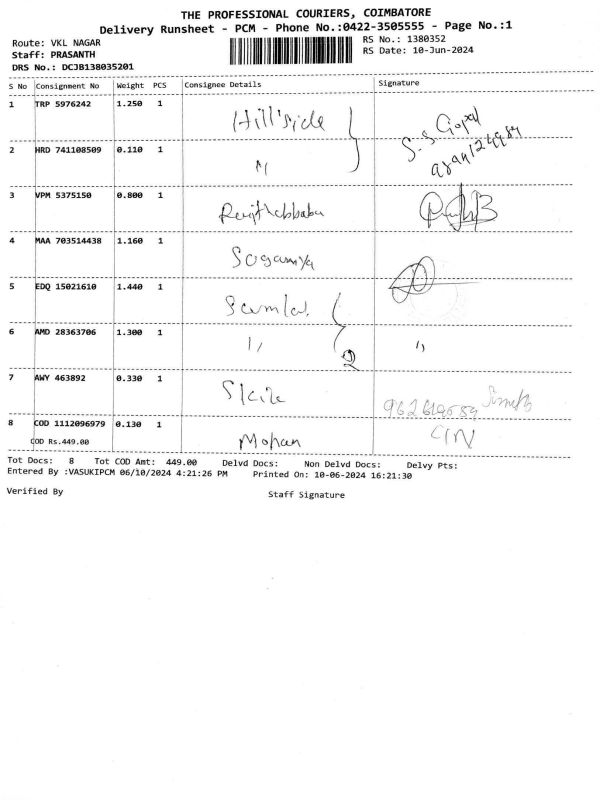 THE PROFESSIONAL COURIERS, COIMBATORE
Delivery Runsheet - PCM - Phone No.:0422-3505555 - Page No.:1
Route: VKL NAGAR
Staff: PRASANTH
DRS No.: DCJB138035201
RS No.: 1380352
RS Date: 10-Jun-2024
S No Consignment No Weight PCS Consignee Details Signature
1 TRP 5976242 1.250 1 Hill'side S.S Gopal
2 HRD 741108509 0.110 1 "
3 VPM 5375150 0.800 1
4 MAA 703514438 1.160 1
5 EDQ 15021610 1.440 1
6 AMD 28363706 1.300 1 " 2 "
7 AWY 463892 0.330 1
8 COD 1112096979 0.130 1 Mohan
COD Rs.449.00
Tot Docs: 8 Tot COD Amt: 449.00 Delvd Docs: Non Delvd Docs: Delvy Pts:
Entered By :VASUKIPCM 06/10/2024 4:21:26 PM Printed On: 10-06-2024 16:21:30
Verified By Staff Signature